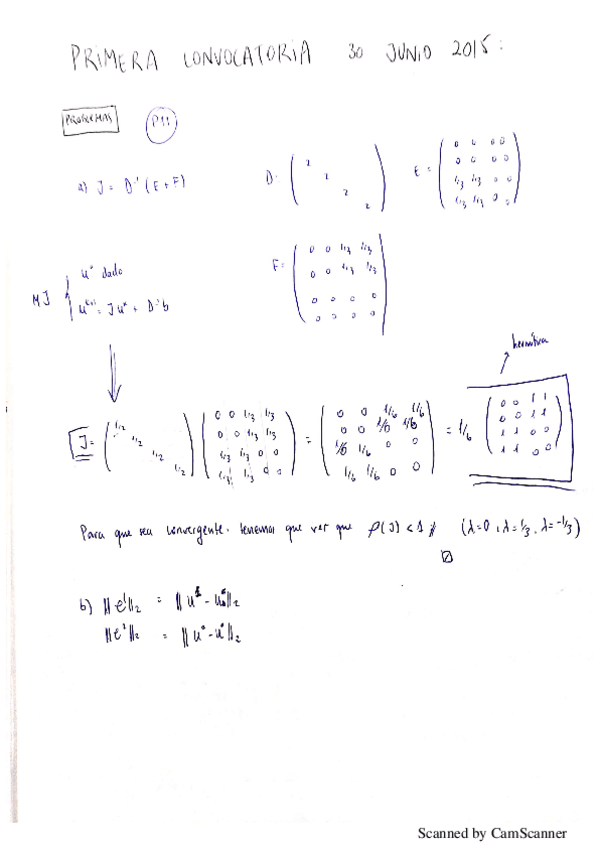 PRIMERA CONVOCATORIA 30 JUNIO 2015:
PROBLEMAS P11
a) J = D⁻¹ (E + F)
D = ( 2 2 2 2 )
E = ( 0 0 0 0
0 0 0 0
1/3 1/3 0 0
1/3 1/3 0 0 )
MJ { u⁰ dado
uᵏ⁺¹ = Juᵏ + D⁻¹b
F = ( 0 0 1/3 1/3
0 0 1/3 1/3
0 0 0 0
0 0 0 0 )
⇓
hermítica
J = ( 1/2 1/2 1/2 1/2 ) ( 0 0 1/3 1/3
0 0 1/3 1/3
1/3 1/3 0 0
1/3 1/3 0 0 ) = ( 0 0 1/6 1/6
0 0 1/6 1/6
1/6 1/6 0 0
1/6 1/6 0 0 ) = 1/6 ( 0 0 1 1
0 0 1 1
1 1 0 0
1 1 0 0 )
Para que sea convergente. tenemos que ver que ρ(J) < 1 // (λ=0, λ=1/3, λ=-1/3)
b) ||e¹||₂ = ||u¹ - u⁰||₂
||e²||₂ = ||u⁰ - u⁰||₂
Scanned by CamScanner